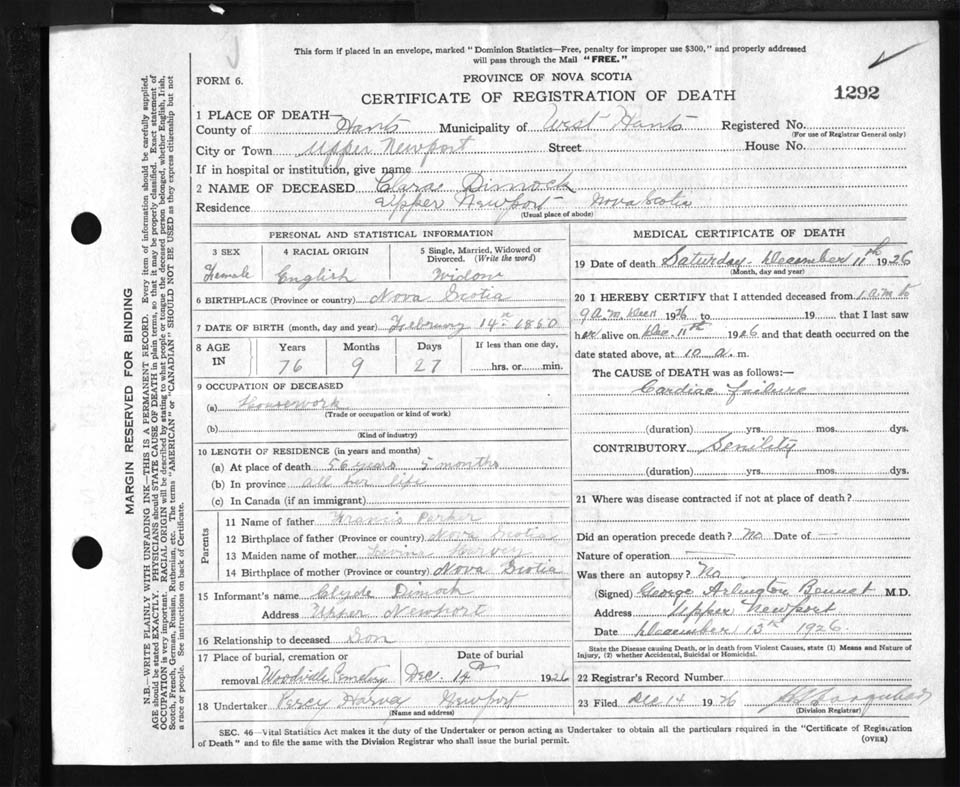 This form if placed in an envelope, marked "Dominion Statistics—Free, penalty for improper use $300," and properly addressed
will pass through the Mail "FREE."
FORM 6.
PROVINCE OF NOVA SCOTIA
CERTIFICATE OF REGISTRATION OF DEATH
1292
1 PLACE OF DEATH—
County of Hants Municipality of West Hants Registered No.
(For use of Registrar General only)
City or Town Upper Newport Street House No.
If in hospital or institution, give name
2 NAME OF DECEASED Clara Dimock
Residence Upper Newport Nova Scotia
(Usual place of abode)
PERSONAL AND STATISTICAL INFORMATION
3 SEX 4 RACIAL ORIGIN 5 Single, Married, Widowed or
Divorced. (Write the word)
Female English Widow
6 BIRTHPLACE (Province or country) Nova Scotia
7 DATE OF BIRTH (month, day and year) February 14th 1850
8 AGE IN Years Months Days If less than one day,
76 9 27 hrs. or min.
9 OCCUPATION OF DECEASED
(a) Housework
(Trade or occupation or kind of work)
(b)
(Kind of industry)
10 LENGTH OF RESIDENCE (in years and months)
(a) At place of death 56 years 5 months
(b) In province all her life
(c) In Canada (if an immigrant)
Parents
11 Name of father Francis Parker
12 Birthplace of father (Province or country) Nova Scotia
13 Maiden name of mother Levina Harvey
14 Birthplace of mother (Province or country) Nova Scotia
15 Informant's name Clyde Dimock
Address Upper Newport
16 Relationship to deceased Son
17 Place of burial, cremation or Date of burial
removal Woodville Cemetery Dec. 14th 1926
18 Undertaker Percy Harvey Newport
(Name and address)
MEDICAL CERTIFICATE OF DEATH
19 Date of death Saturday December 11th 1926
(Month, day and year)
20 I HEREBY CERTIFY that I attended deceased from 1 a.m to
9 a.m. Dec 11 1926 to 19 that I last saw
her alive on Dec. 11th 1926 and that death occurred on the
date stated above, at 10 a. m.
The CAUSE OF DEATH was as follows:—
Cardiac failure
(duration) yrs. mos. dys.
CONTRIBUTORY Senility
(duration) yrs. mos. dys.
21 Where was disease contracted if not at place of death?
Did an operation precede death? No Date of —
Nature of operation —
Was there an autopsy? No
(Signed) George Arlington Bennet M.D.
Address Upper Newport
Date December 13th 1926.
State the Disease causing Death, or in death from Violent Causes, state (1) Means and Nature of
Injury, (2) whether Accidental, Suicidal or Homicidal.
22 Registrar's Record Number
23 Filed Dec 14 1926
(Division Registrar)
SEC. 46—Vital Statistics Act makes it the duty of the Undertaker or person acting as Undertaker to obtain all the particulars required in the "Certificate of Registration
of Death" and to file the same with the Division Registrar who shall issue the burial permit.
(OVER)
MARGIN RESERVED FOR BINDING
N.B.—WRITE PLAINLY WITH UNFADING INK—THIS IS A PERMANENT RECORD. Every item of information should be carefully supplied.
AGE should be stated EXACTLY. PHYSICIANS should STATE CAUSE OF DEATH in plain terms, so that it may be properly classified. Exact statement of
OCCUPATION is very important. RACIAL ORIGIN will be described by stating to what people or tongue the deceased person belonged, whether English, Irish,
Scotch, French, German, Russian, Ruthenian, etc. The terms "AMERICAN" or "CANADIAN" SHOULD NOT BE USED as they express citizenship but not
a race or people. See instructions on back of Certificate.